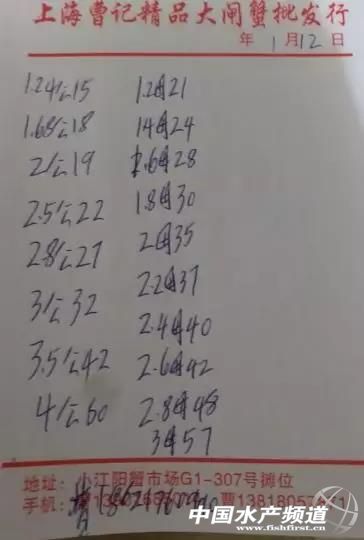 上海曹记精品大闸蟹批发行
年 1月12日
1.24公15 1.2母21
1.68公18 1.4母24
2公19 1.6母28
2.5公22 1.8母30
2.8公27 2母35
3公32 2.2母37
3.5公42 2.4母40
4公60 2.6母42
2.8母48
3母57
地址：小江阳蟹市场G1-307号摊位
手机：
曹13818057
中国水产频道
www.fishfirst.cn